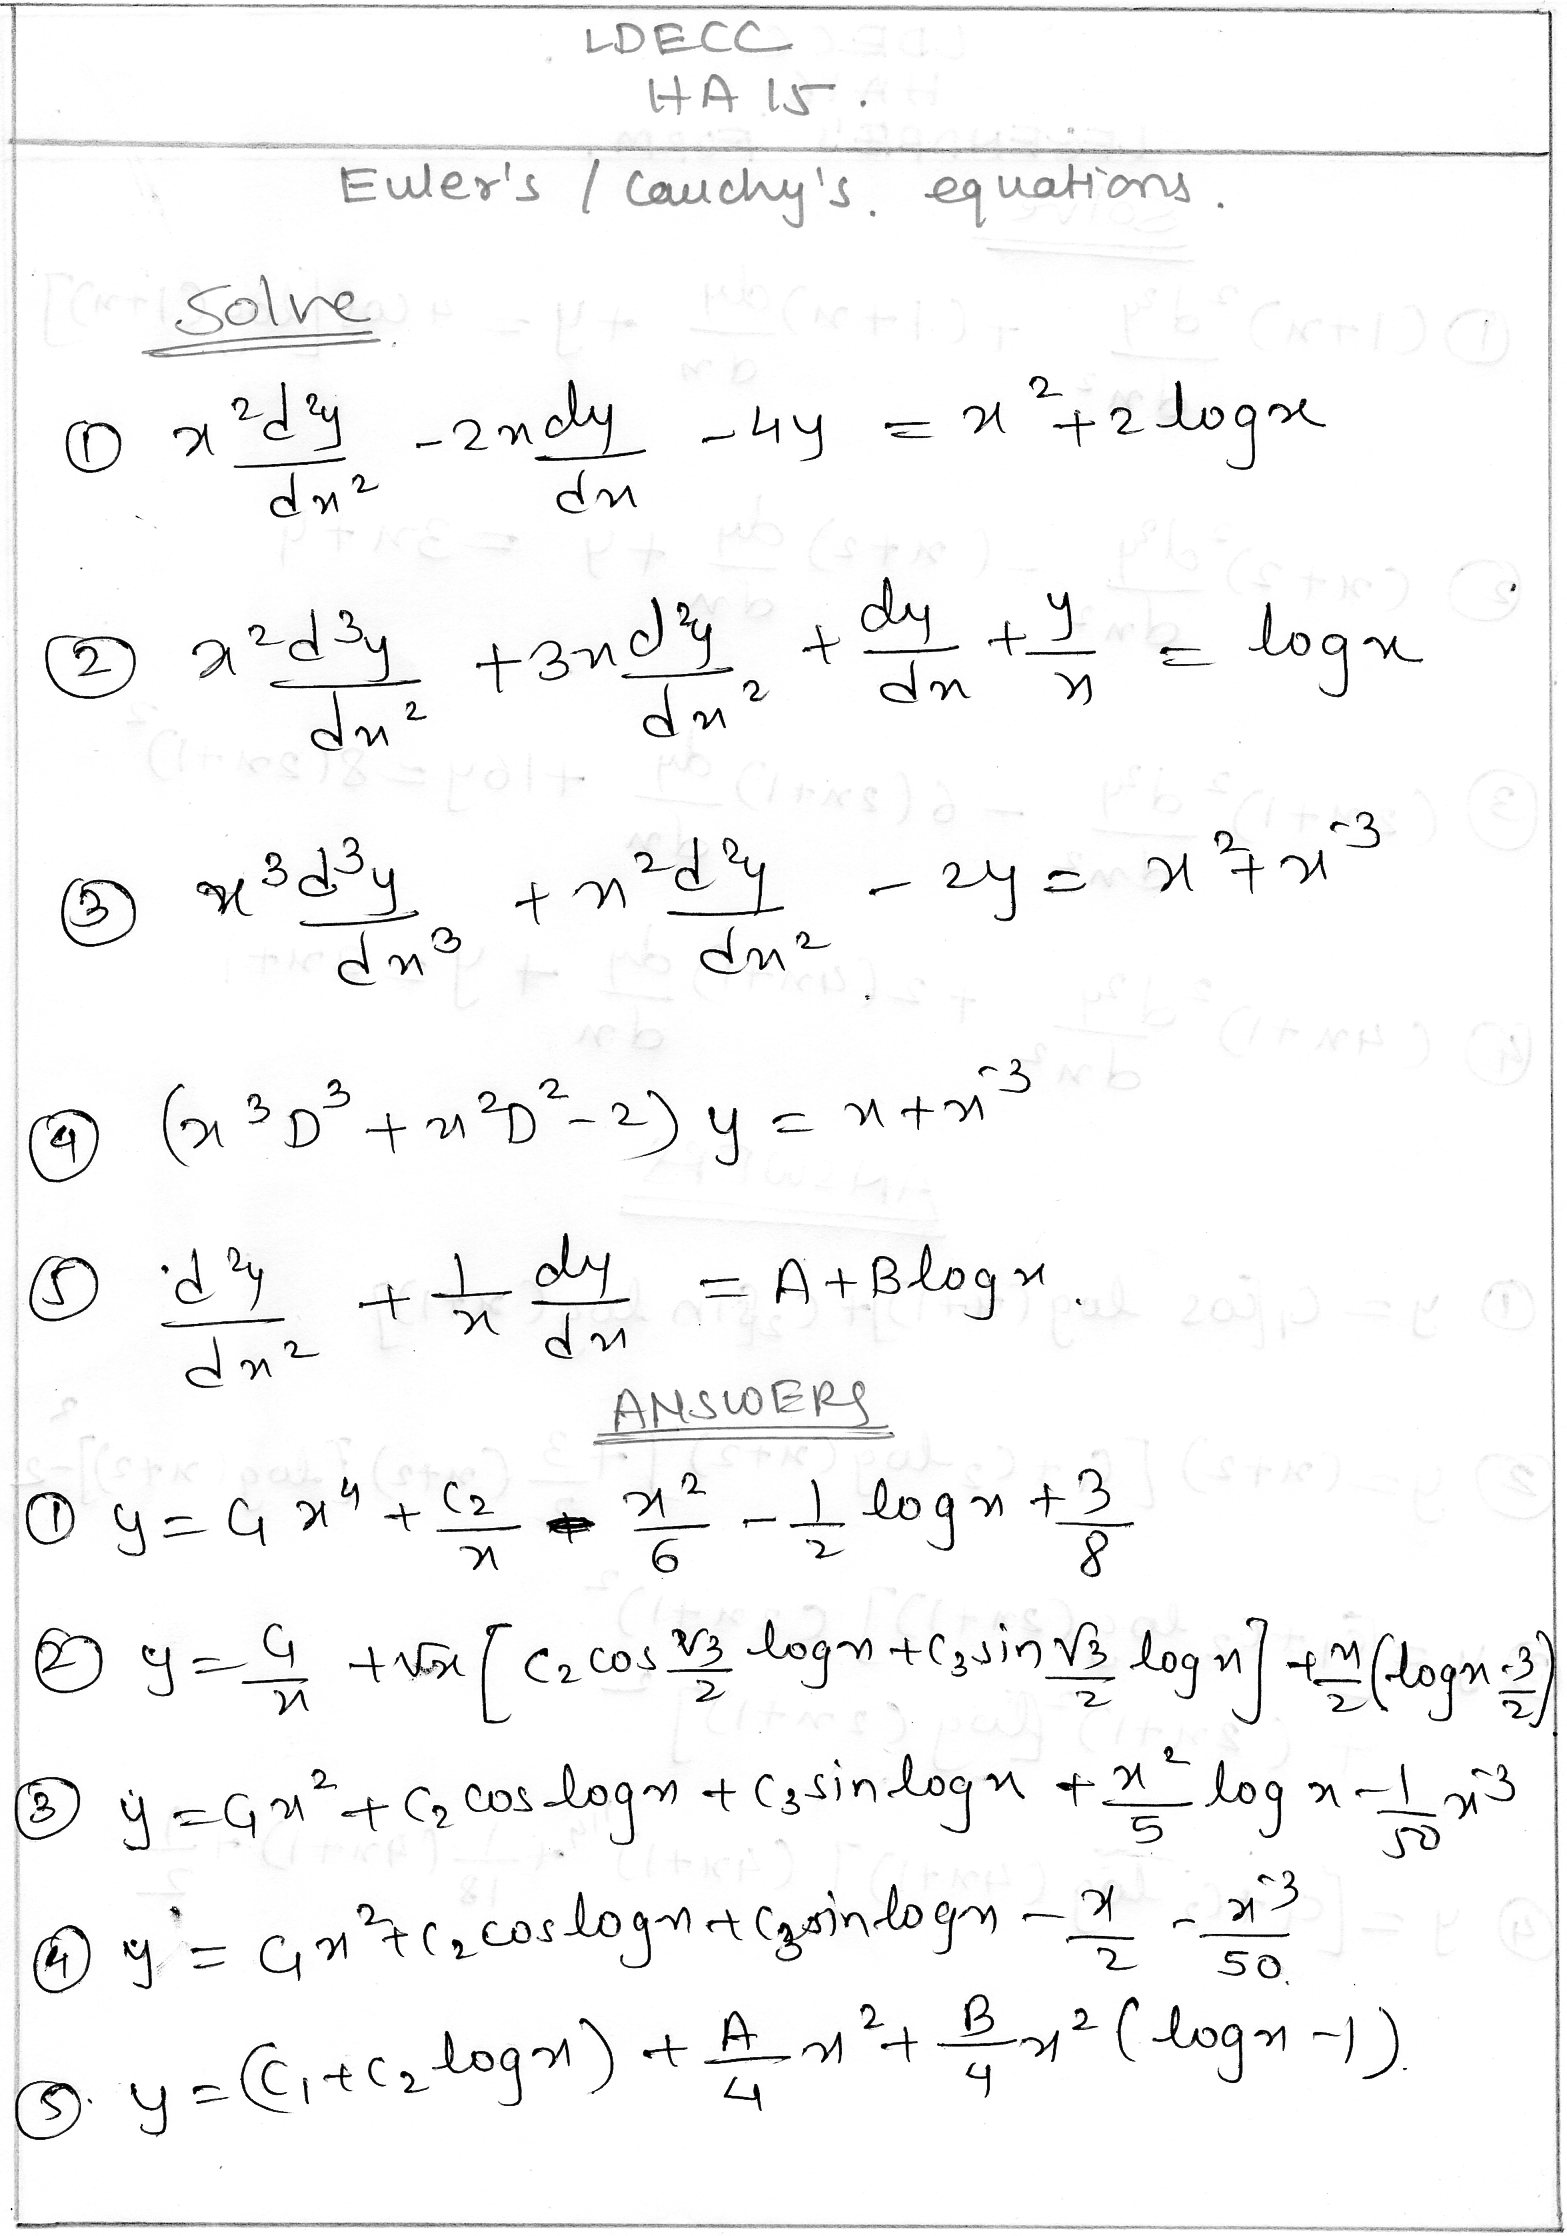 LDECC
HA 15.
Euler's / Cauchy's. equations.
Solve
① x² d²y/dx² - 2x dy/dx - 4y = x² + 2 log x
② x² d³y/dx² + 3x d²y/dx² + dy/dx + y/x = log x
③ x³ d³y/dx³ + x² d²y/dx² - 2y = x² + x⁻³
④ (x³D³ + x²D² - 2) y = x + x⁻³
⑤ d²y/dx² + 1/x dy/dx = A + B log x.
ANSWERS
① y = C₁ x⁴ + C₂/x - x²/6 - 1/2 log x + 3/8
② y = C₁/x + √x [C₂ cos √3/2 log x + C₃ sin √3/2 log x] + x/2 (log x - 3/2)
③ y = C₁x² + C₂ cos log x + C₃ sin log x + x²/5 log x - 1/50 x⁻³
④ y = C₁x² + C₂ cos log x + C₃ sin log x - x/2 - x⁻³/50.
⑤. y = (C₁ + C₂ log x) + A/4 x² + B/4 x² (log x - 1).